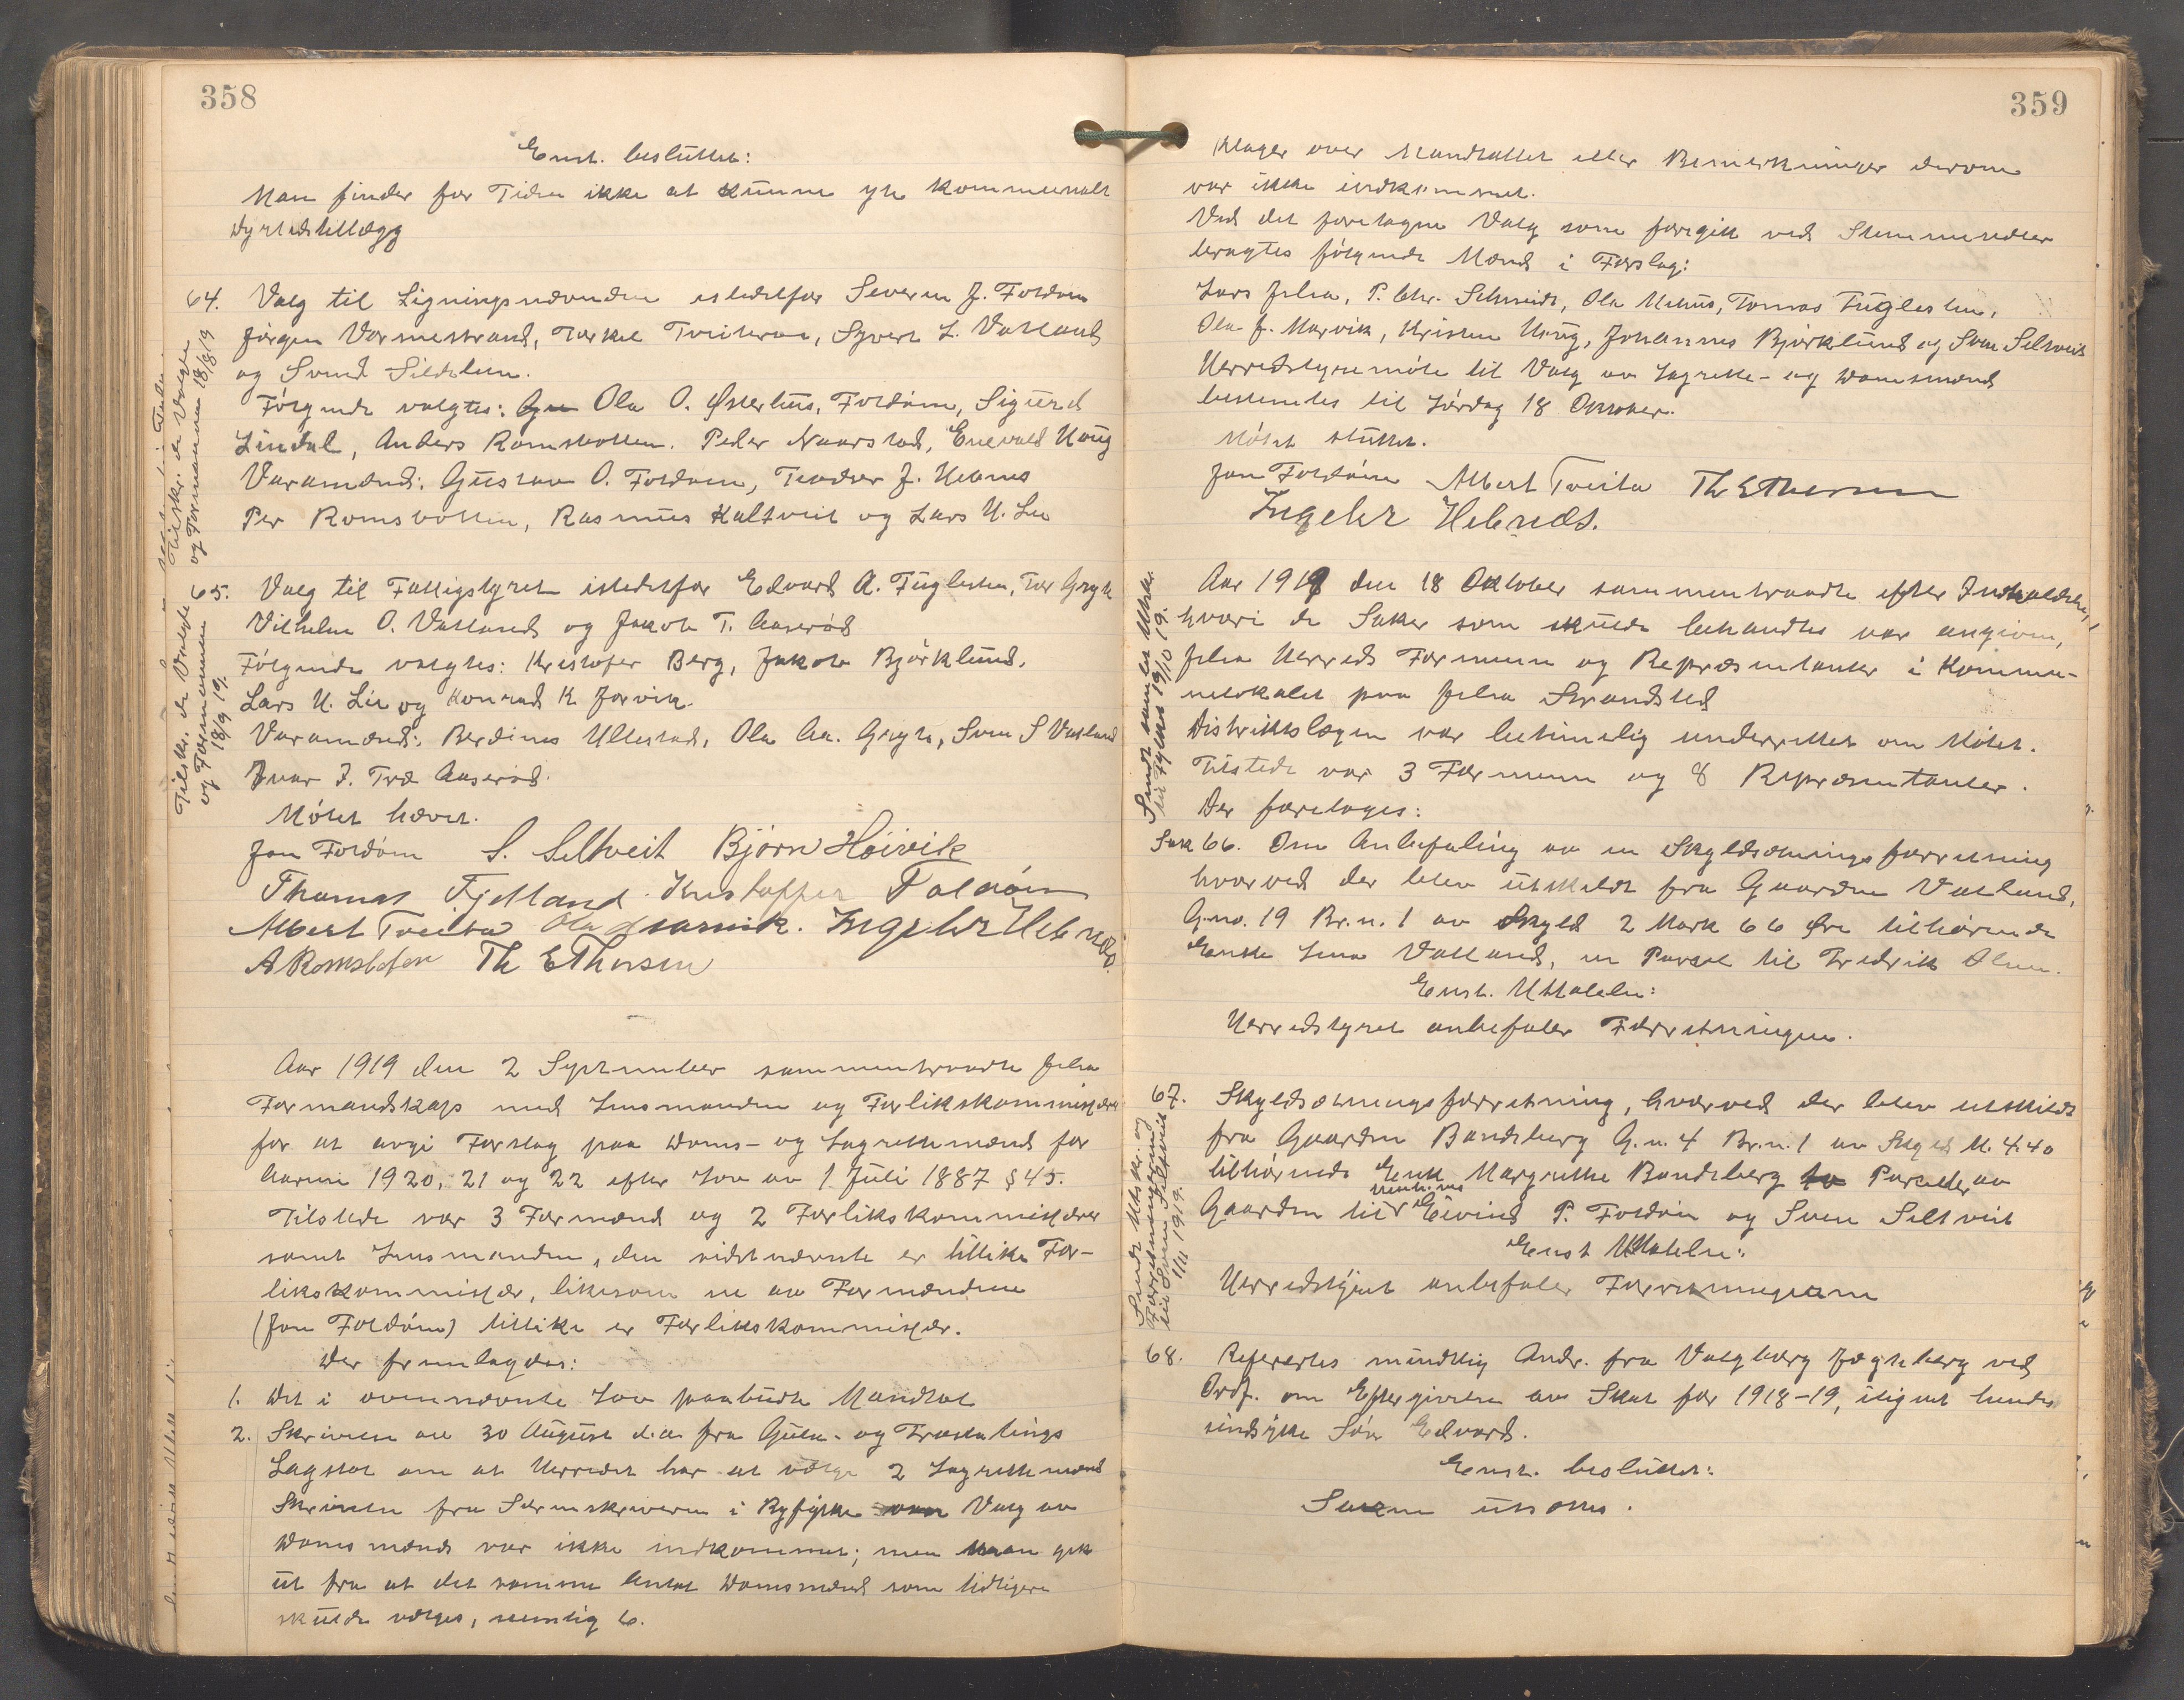 358
Enst. besluttet:
Man finder for Tiden ikke at kunne yte kommunalt
Dyrtidstillægg
64. Valg til Ligningsnævnden istedetfor Severin J. Foldøen
Jørgen Varmestrand, Torkel Tveiteraa, Syvert L. Vatland
og Svend Sildelien.
Følgende valgtes: Ola O. Østerhus, Foldøen, Sigurd
Lindal, Anders Romsbotten. Peder Naarstad, Enevald Haug
Varamænd: Gustav O. Foldøen, Teodor J. Hebnes
Per Romsbotten, Rasmus Kaltveit og Lars H. Lie
Tilskr. de Valgte
og Formanden 18/8 19
65. Valg til Fattigstyret istedetfor Edvard A. Fuglestein, Tor Gryte
Vilhelm O. Vatland og Jakob T. Aaserød
Følgende valgtes: Kristofer Berg, Jakob Bjørklund.
Lars H. Lie og Konrad K Jorvik.
Varamænd: Berdines Ullestad, Ola Aa. Gryte, Sven S Vatland
Ivar J. Træ Aaserød.
Tilskr. de Valgte
og Formannen
18/9 19.
Møtet hævet.
Jon Foldøen S. Seltveit Bjørn Høivik
Thomas Fjelland. Kristoffer Foldøen
Albert Tveita Ola J Marvik. Ingebr Hebnes.
A Romsbotn Th EThorsen
Aar 1919 den 2 September sammentraadte Jelsa
Formandskap med Lensmanden og Forlikskommissærer
for at avgi Forslag paa Doms- og Lagrettemænd for
Aarene 1920, 21 og 22 efter Lov av 1 Juli 1887 § 45.
Tilstede var 3 Formænd og 2 Forlikskommissærer
samt Lensmanden, den sidstnævnte er tillike For-
likskommissær, likesom en av Formændene
(Jon Foldøen) tillike er Forlikskommissær.
Der fremlagdes:
1. Det i ovennævnte Lov paabudte Mandtal
2. Skrivelse av 30 August d.a. fra Gula- og Frostatings
Lagstol om at Herredet har at vælge 2 Lagrettemænd
Skrivelse fra Sorenskriveren i Ryfylke om Valg av
Domsmænd var ikke indkommet; men man gik
ut fra at det samme Antal Domsmænd som tidligere
skulde vælges, nemlig 6.
359
Klager over Mandtallet eller Bemerkninger derom
var ikke indkommet.
Ved det foretagne Valg som foregik ved Stemmesedler
bragtes følgende Mænd i Forslag:
Lars Jelsa, P. Chr. Schmidt, Ola Mehus, Tomas Fuglestein,
Ola J. Marvik, Kristen Haug, Johannes Bjørklund og Sven Seltveit
Herredstyremøte til Valg av Lagrette- og Domsmænd
bestemtes til Lørdag 18 Oktober.
Møtet sluttet.
Jon Foldøen Albert Tveita Th EThorsen
Ingebr Hebnes.
Aar 1919 den 18 Oktober sammentraadte efter Indkaldelse,
hvori de Saker som skulde behandles var angiven,
Jelsa Herreds Formenn og Repræsentanter i Kommu-
nelokalet paa Jelsa Strandsted
Distriktslægen var betimelig underrettet om Møtet.
Tilstede var 3 Formenn og 8 Repræsentanter.
Der foretoges:
Sendt samlet Utskr.
til Fylket 19/10 19.
Sak 66. Om Anbefaling av en Skyldsætningsforretning
hvorved der blev utskildt fra Gaarden Vatland,
G.no. 19 Br.n. 1 av Skyld 2 Mark 66 Øre tilhørende
Enke Lina Vatland, en Parsel til Fredrik Alne.
Enst. Uttalelse:
Herredstyret anbefaler Forretningen.
67. Skyldsætningsforretning, hvorved der blev utskildt
fra Gaarden Bandsberg G.n. 4 Br.n. 1 av Skyld M. 4.40
tilhørende Enke Margrethe Bandsberg to Parceller av
Gaarden til henh.vis Eivind P. Foldøen og Sven Seltveit
Enst Uttalelse:
Herredstyret anbefaler Forretningerne
Sendt Utskr. og
Forretningerne
til Sven Seltveit
1/11 1919.
68. Refereertes mundtlig Andr. fra Valgberg Jægtberg ved
Ordf. om Eftergivelse av Skat for 1918-19, ilignet hendes
sindsyke Søn Edvard.
Enst. besluttet:
Saken utsættes.